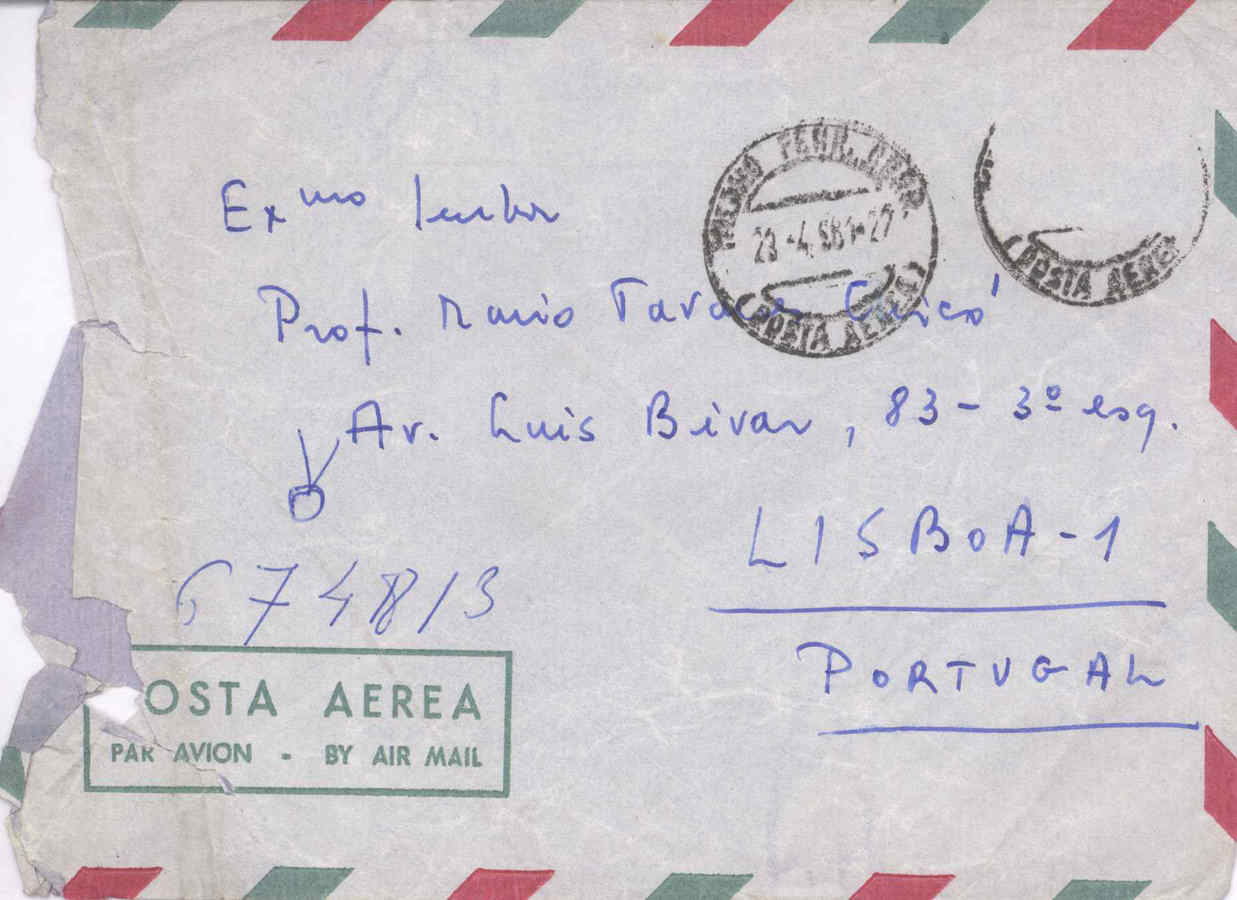 Exmo Senhor
Prof. Mario Tavares Chicó
Av. Luis Bivar, 83 - 3º esq.
LISBOA - 1
PORTUGAL
6748/3
FERR. AEREO
(POSTA AEREA)
(POSTA AEREA)
OSTA AEREA
PAR AVION - BY AIR MAIL